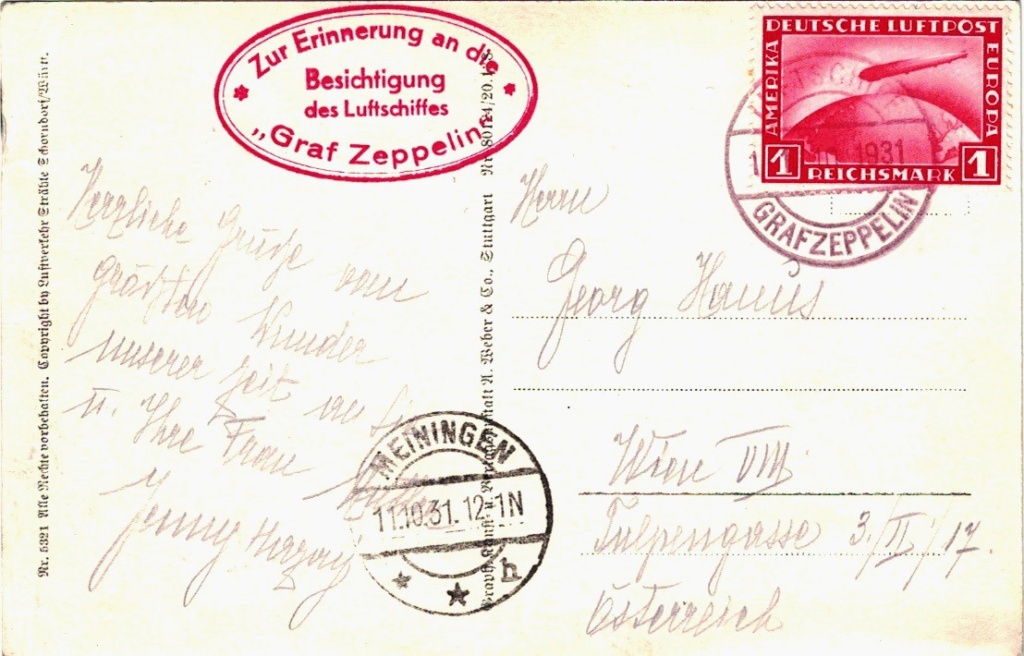 Nr. 5321 Alle Rechte vorbehalten. Copyright by Luftverkehr Strähle Schorndorf/Württ.
Zur Erinnerung an die
Besichtigung
des Luftschiffes
„Graf Zeppelin"
Herzliche Grüße vom
größten Wunder
unserer Zeit an Sie
u. Ihre Frau
Jenny Herzog
MEININGEN
11.10.31.12-1N
h
Graph. Kunst- u. Verlagsanstalt A. Weber & Co., Stuttgart Nr. 80124/20.
DEUTSCHE LUFTPOST
AMERIKA
EUROPA
1 1
REICHSMARK
1931
GRAFZEPPELIN
Herrn
Georg Hanus
Wien VIII
Tulpengasse 3./II/17.
Österreich